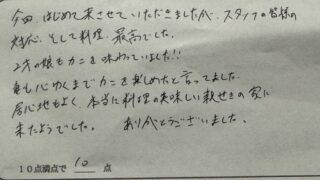 今回、はじめて来させていただきましたが、スタッフの皆様の
対応、そして料理、最高でした。
2才の娘もカニを味わっていました!!
妻も心ゆくまでカニを楽しめたと言ってました。
居心地もよく、本当に料理の美味しい親せきの家に
来たようでした。 ありがとうございました。
10点満点で 10 点